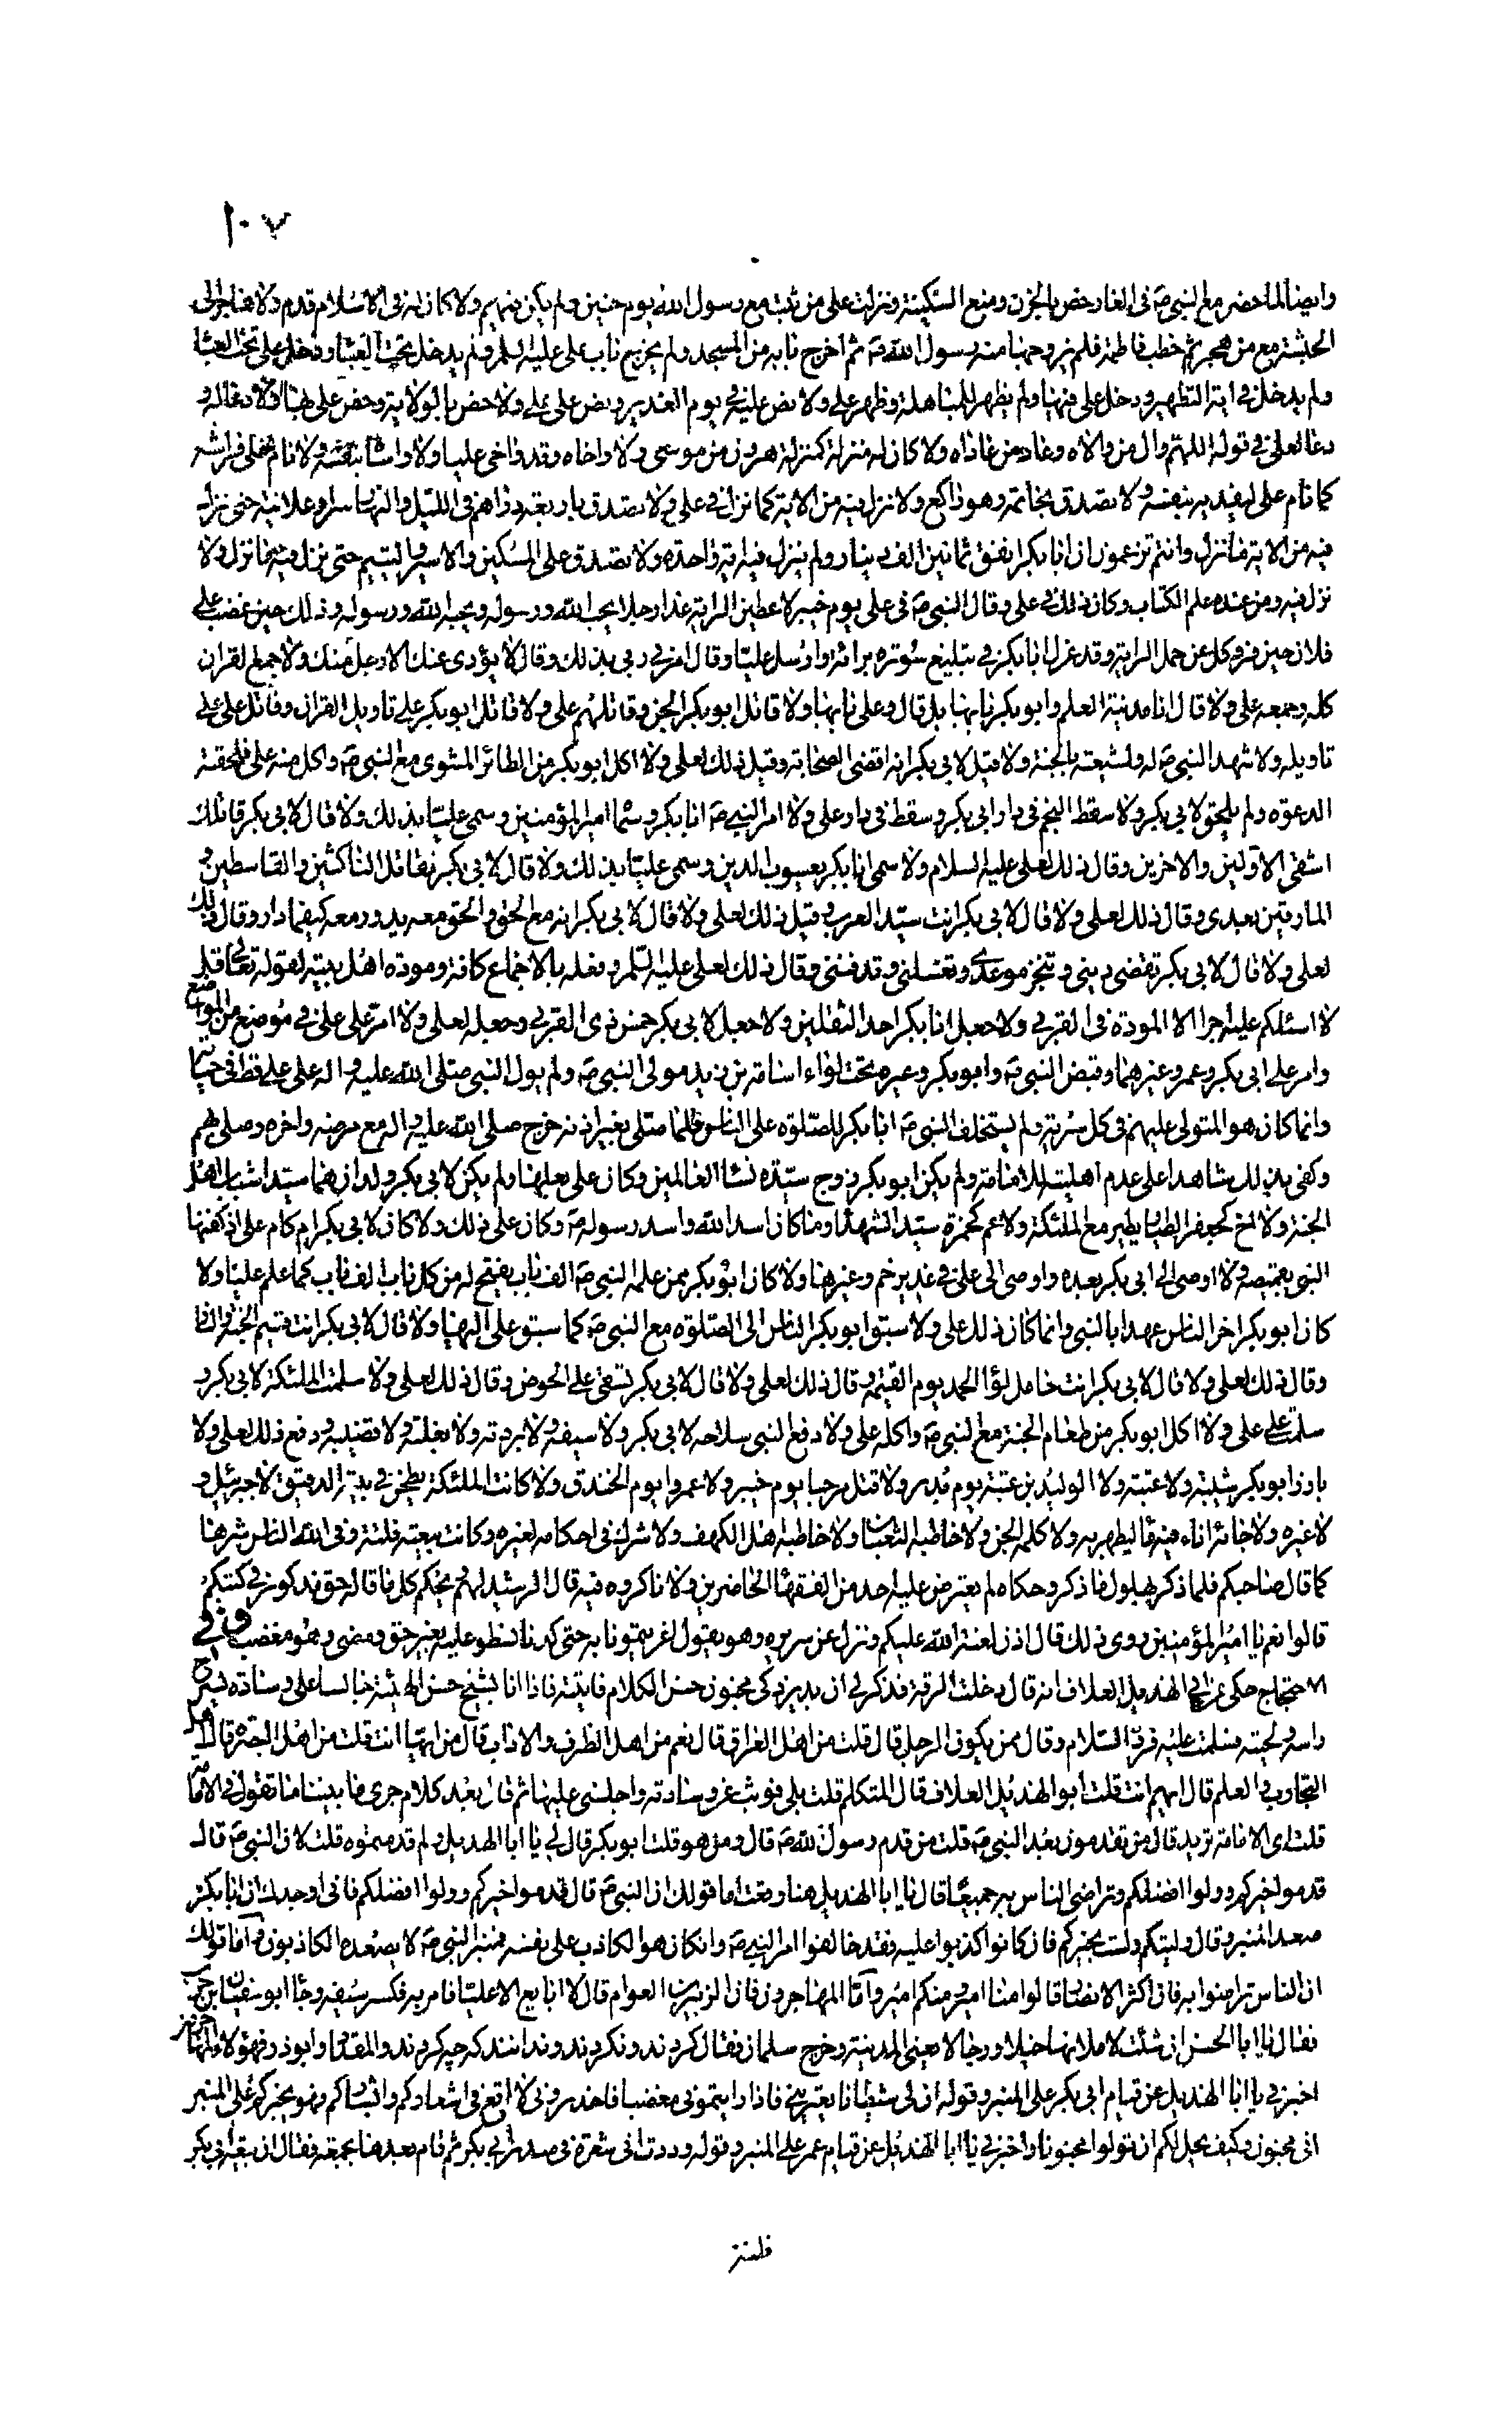 ١٠٧
وايضا لما حضر مع النبي ص في الغار خص بالحزن ومنع السكينة ونزلت على من ثبت مع رسول الله يوم حنين ولم يكن منهم ولا كان له في الاسلام قدم ولا هاجر الى
الحبشة مع من هجر ثم خطب فاطمة فلم يزوجها منه رسول الله ص ثم اخرج بابه من المسجد ولم يخرج باب علي عليه السلم ولم يدخل تحت العبا ودخل علي تحت العبا
ولم يدخل في اية التطهير ودخل علي فيها ولم يظهر للمباهلة وظهر علي ولا نص عليه في يوم الغدير ونص على علي ولا خص بالولاية وخص علي بها ولا دعا له و
دعا لعلي في قوله اللهم وال من والاه وعاد من عاداه ولا كان له منزلة كمنزلة هرون من موسى ولا واخاه وقد واخى عليا ولا واساه بنفسه ولا نام على فراشه
كما نام علي ليفديه بنفسه ولا تصدق بخاتمه وهو راكع ولا نزل فيه من الاية كما نزل في علي ولا تصدق باربعة دراهم في الليل والنهار سرا وعلانية حتى نزل
فيه من الاية ما نزل وانتم تزعمون ان ابا بكر انفق ثمانين الف دينار ولم ينزل فيه اية واحدة ولا تصدق على المسكين والاسير واليتيم حتى نزل فيه ما نزل ولا
نزل فيه ومن عنده علم الكتاب وكان ذلك في علي وقال النبي ص في علي يوم خيبر لاعطين الراية غدا رجلا يحب الله ورسوله ويحبه الله ورسوله وذلك حين غضب على
فلان حين فر وكل عن حمل الراية وقد عزل ابا بكر في تبليغ سورة برائة وارسل عليا وقال امرني ربي بذلك وقال لا يؤدي عنك الا رجل منك ولا جمع القران
كله وجمعه علي ولا قال انا مدينة العلم وابو بكر بابها بل قال وعلي بابها ولا قاتل ابو بكر الجن وقاتلهم علي ولا قاتل ابو بكر على تاويل القران وقاتل علي على
تاويله ولا شهد النبي ص له ولشيعته بالجنة ولا قيل لابي بكر انه اقضى الصحابة وقيل ذلك لعلي ولا اكل ابو بكر من الطائر المشوي مع النبي ص واكل منه علي فلحقته
الدعوة ولم يلحق لابي بكر ولا سقط النجم في دار ابي بكر وسقط في دار علي ولا امر النبي ص ابا بكر وسماه امير المؤمنين وسمى عليا بذلك ولا قال لابي بكر قاتلك
اشقى الاولين والاخرين وقال ذلك لعلي عليه السلام ولا سمى ابا بكر يعسوب الدين وسمى عليا بذلك ولا قال لابي بكر تقاتل الناكثين والقاسطين و
المارقين بعدي وقال ذلك لعلي ولا قال لابي بكر انت سيد العرب وقيل ذلك لعلي ولا قال لابي بكر انه مع الحق والحق معه يدور معه كيفما دار وقال ذلك
لعلي ولا قال لابي بكر تقضي ديني وتنجز موعدي وتغسلني وتدفنني وقال ذلك لعلي عليه السلم وفعله بالاجماع كافة ومودة اهل بيته لقوله تعالى قل
لا اسئلكم عليه اجرا الا المودة في القربى ولا جعل ابا بكر احد الثقلين ولا جعل لابي بكر خمس ذي القربى وجعله لعلي ولا امر على علي في موضع من المواضع
وامر على ابي بكر وعمر وغيرهما وقبض النبي ص وابو بكر وغيره تحت لواء اسامة بن زيد مولى النبي ص ولم يول النبي صلى الله عليه واله على علي قط في حياته
وانما كان هو المتولي عليهم في كل سرية ولم يستخلف النبي ص ابا بكر للصلوة على الناس فلما صلى بغير اذنه خرج صلى الله عليه واله مع مرضه واخره وصلى هم
وكفى بذلك شاهدا على عدم اهليته للامامة ولم يكن ابو بكر زوج سيدة نساء العالمين وكان علي بعلها ولم يكن لابي بكر ولدان هما سيدا شباب اهل
الجنة ولا اخ كجعفر الطيار يطير مع الملئكة ولا عم كحمزة سيد الشهدا وما كان اسد الله واسد رسوله ص وكان علي ذلك ولا كان لابي بكر ام كام علي اذ كفنها
النبي بقميصه ولا اوصى الى ابي بكر بعده واوصى الى علي في غدير خم وغيرها ولا كان ابو بكر ممن علمه النبي ص الف باب يفتح له من كل باب الف باب كما علم عليا ولا
كان ابو بكر اخر الناس عهدا بالنبي وانما كان ذلك علي ولا سبق ابو بكر الناس الى الصلوة مع النبي ص كما سبق علي اليها ولا قال لابي بكر انت قسيم الجنة والنار
وقال ذلك لعلي ولا قال لابي بكر انت حامل لواء الحمد يوم القيمة وقال ذلك لعلي ولا قال لابي بكر تسقي على الحوض وقال ذلك لعلي ولا سلمت الملئكة لابي بكر و
سلمت على علي ولا اكل ابو بكر من طعام الجنة مع النبي ص واكله علي ولا دفع النبي سلاحه لابي بكر ولا سيفه ولا بردته ولا بغلته ولا قضيبه ودفع ذلك لعلي ولا
بارز ابو بكر شيبة ولا عتبة ولا الوليد بن عتبة يوم بدر ولا قتل مرحبا يوم خيبر ولا عمروا يوم الخندق ولا كانت الملئكة يطحن في بيته الدقيق لا جبرئيل و
لا غيره ولا جائه اناء فيه ماء ليطهر به ولا كلمه الجن ولا خاطبه الثعبان ولا خاطبه اهل الكهف ولا شرك في احكامه لغيره وكانت بيعته فلتة وقى الله الناس شرها
كما قال صاحبكم فلما ذكر بهلول ما ذكر وحكاه لم يعترض عليه احد من الفقهاء الحاضرين ولا ناكروه فيه قال الرشيد لهم ويحكم كل ما قاله حق مذكور في كتبكم
قالوا نعم يا امير المؤمنين روى ذلك قال اذن لعنة الله عليكم ونزل عن سريره وهو يقول غريتمونا به حتى كدنا نسطو عليه بغير حق ومضى وهو مغضب وفي
الاحتجاج حكى عن ابي الهذيل العلاف انه قال دخلت الرقة فذكر لي ان بدير زكى مجنون حسن الكلام فاتيته فاذا انا بشيخ حسن الهيئة جالسا على وسادة يسرح
راسه ولحيته فسلمت عليه فرد السلام وقال ممن يكون الرجل قال قلت من اهل العراق قال نعم من اهل الظرف والاداب قال من ايها انت قلت من اهل البصرة قال اهل
التجارب والعلم قال ايهم انت قلت ابو الهذيل العلاف قال المتكلم قلت بلى فوثب عن وسادته واجلسني عليها ثم قال بعد كلام جرى بيننا ما تقول في الامامة
قلت اي الامامة تريد قال من تقدمون بعد النبي ص قلت من قدم رسول الله ص قال ومن هو قلت ابو بكر قال لي يا ابا الهذيل ولم قدمتموه قلت لان النبي ص قال
قدموا خيركم وولوا افضلكم وتراضى الناس به جميعا قال يا ابا الهذيل هنا وقعت اما قولك ان النبي ص قال قدموا خيركم وولوا افضلكم فاني اوجدك ان ابا بكر
صعد المنبر وقال وليتكم ولست بخيركم فان كانوا كذبوا عليه فقد خالفوا امر النبي ص وان كان هو الكاذب على نفسه فمنبر النبي ص لا يصعده الكاذبون واما قولك
ان الناس تراضوا به فان اكثر الانصار قالوا منا امير ومنكم امير واما المهاجرون فان الزبير بن العوام قال لا ابايع الا عليا فامر به فكسر سيفه وجاء ابو سفيان بن حرب
فقال يا ابا الحسن ان شئت لاملانها خيلا ورجالا يعني المدينة وخرج سلمان فقال كردند ونكردند وندانند كه چه كردند والمقداد وابوذر فهؤلاء المهاجرون
اخبرني يا ابا الهذيل عن قيام ابي بكر على المنبر وقوله ان لي شيطانا يعتريني فاذا رايتموني مغضبا فاحذروني لا اقع في اشعاركم وابشاركم فهو يخبركم على المنبر
اني مجنون وكيف يحل لكم ان تولوا مجنونا واخبرني يا ابا الهذيل عن قيام عمر على المنبر وقوله وددت اني شعرة في صدر ابي بكر ثم قام بعدها بجمعة فقال ان بيعة ابي بكر
فلتة